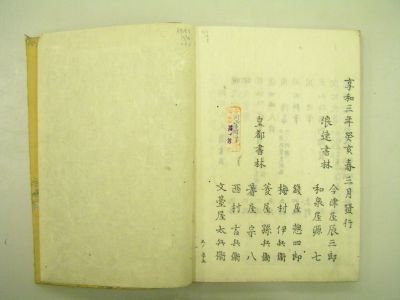 享和三年癸亥春三月發行
浪速書林
今津屋辰三郎
和泉屋源七
皇都書林
錢屋惣四郎
梅村伊兵衞
菱屋孫兵衞
蓍屋宗八
西村吉兵衞
文臺屋太兵衞